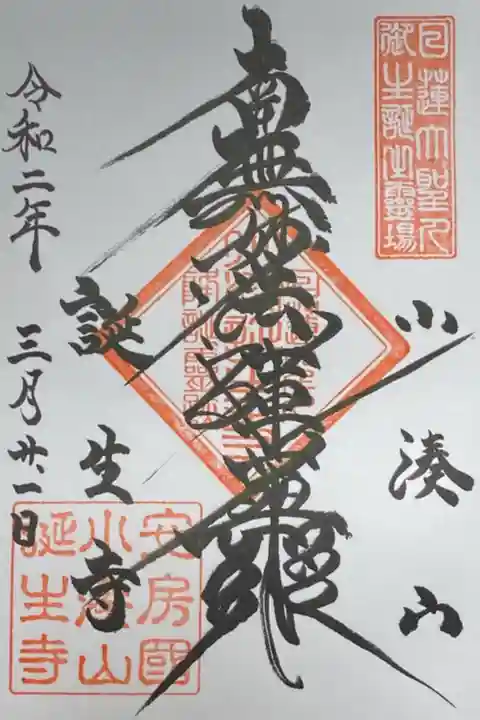 日蓮大聖人
御生誕之靈場
小湊山
南無妙法蓮華經
誕生寺
令和二年 三月廿一日
安房國
小湊山
誕生寺